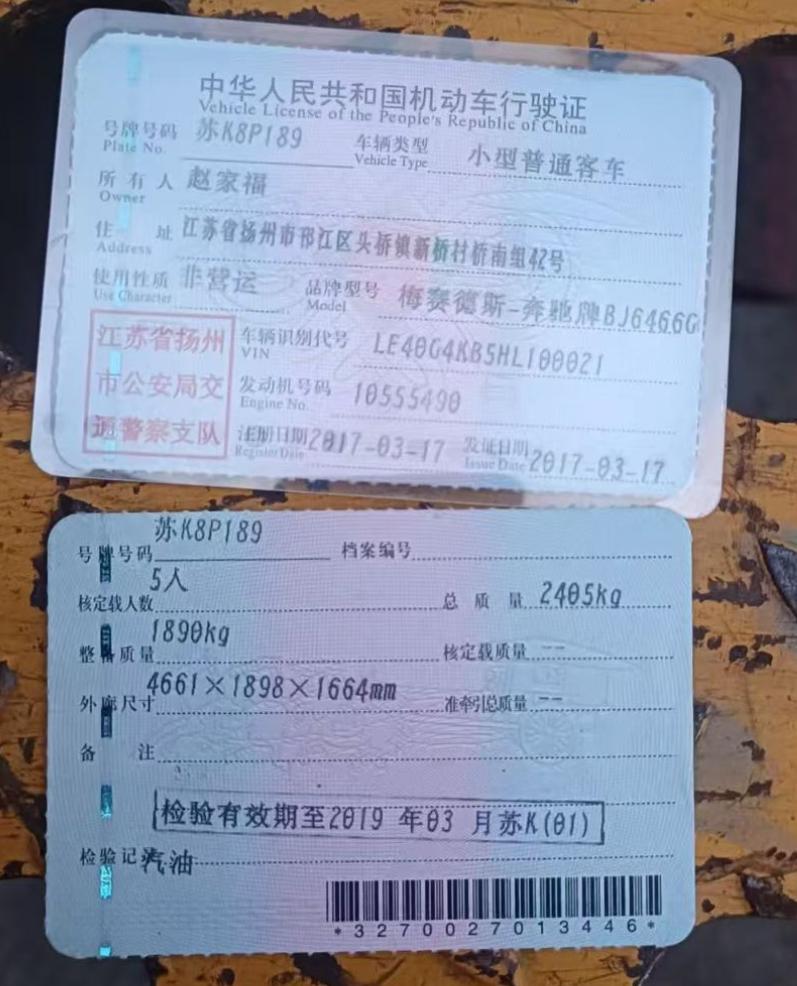 中华人民共和国机动车行驶证
Vehicle License of the People's Republic of China
号牌号码 苏K8P189 车辆类型 小型普通客车
Plate No. Vehicle Type
所有人 赵家福
Owner
住址 江苏省扬州市邗江区头桥镇新桥村桥南组42号
Address
使用性质 非营运 品牌型号 梅赛德斯-奔驰牌BJ6466G
Use Character Model
江苏省扬州
市公安局交
通警察支队
车辆识别代号 LE40G4KB5HL100021
VIN
发动机号码 10555490
Engine No.
注册日期 2017-03-17 发证日期 2017-03-17
Register Date Issue Date
号牌号码 苏K8P189 档案编号
核定载人数 5人 总质量 2405kg
整备质量 1890kg 核定载质量 --
外廓尺寸 4661×1898×1664mm 准牵引总质量 --
备注
检验有效期至2019年03月苏K(01)
检验记录 汽油
*3270027013446*